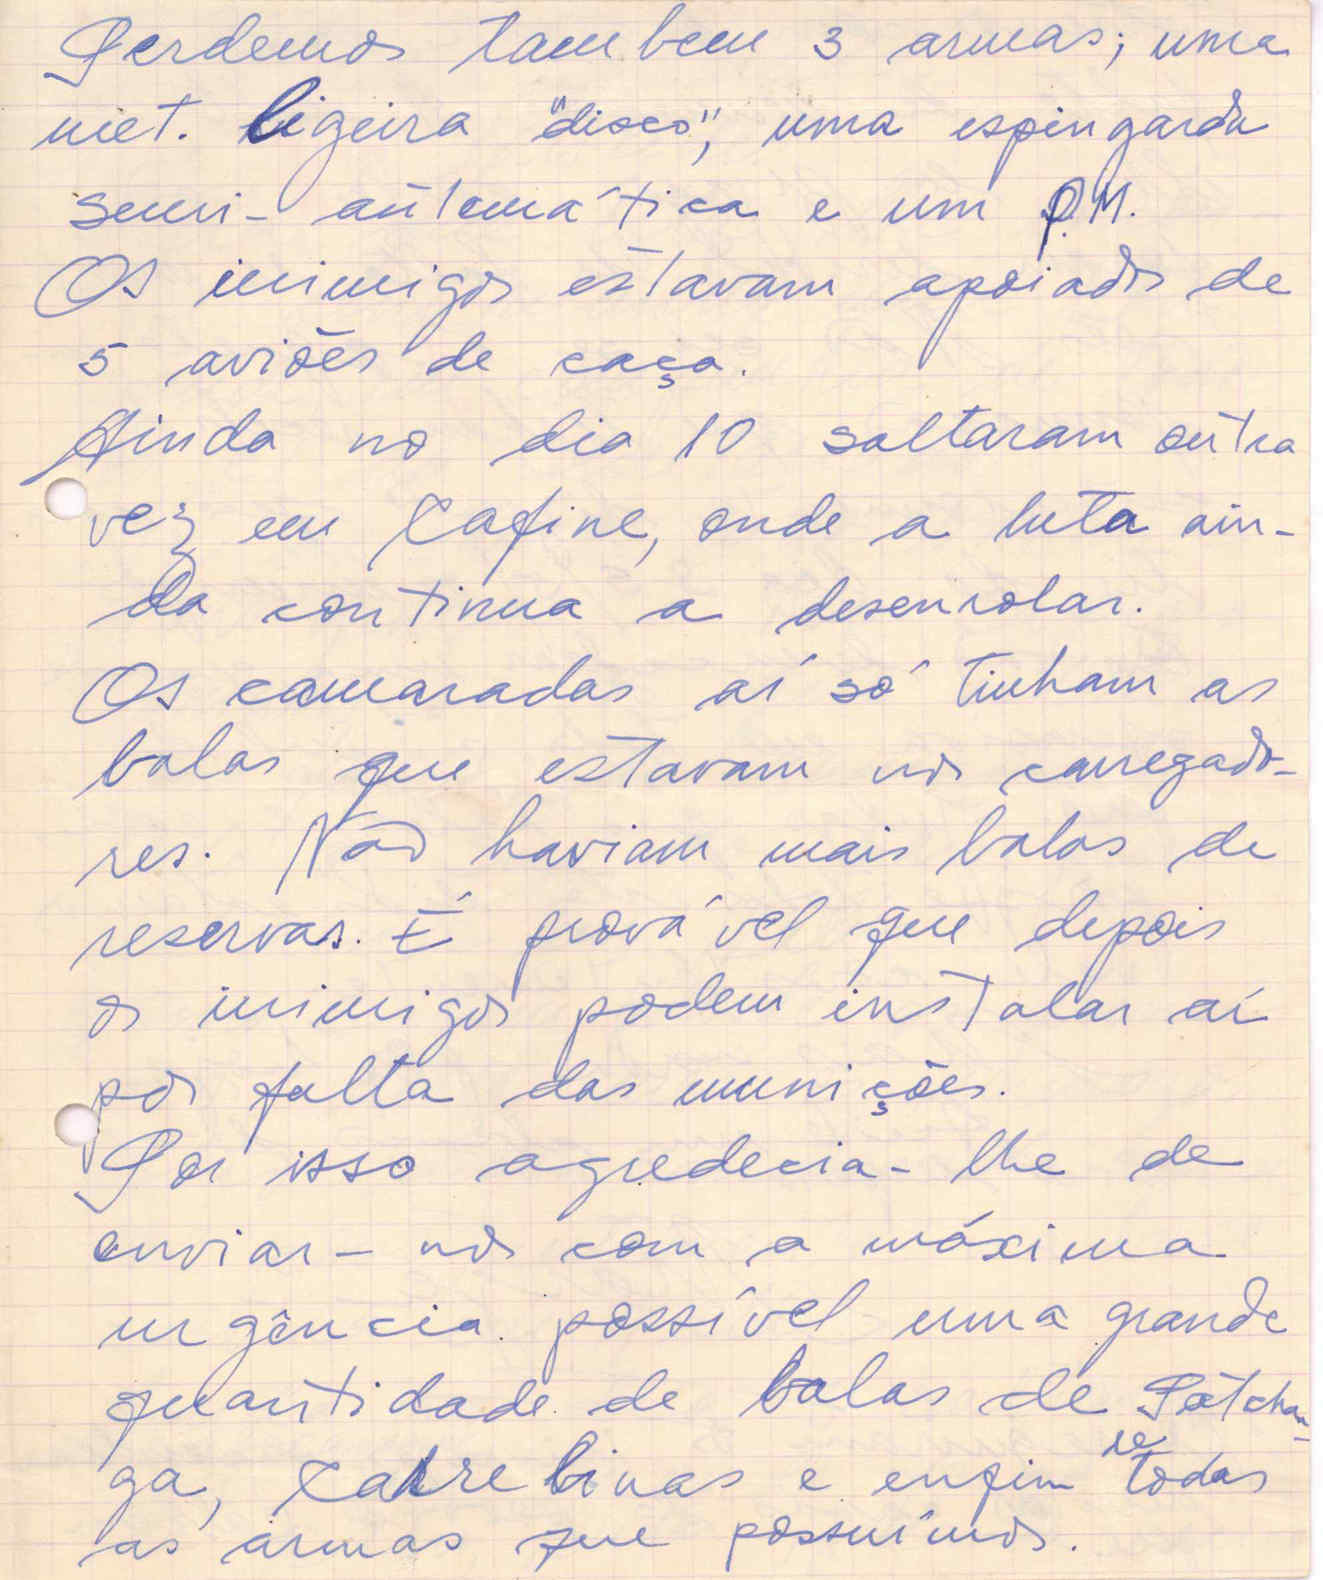 Perdemos tambem 3 armas; uma
met. ligeira "disco", uma espingarda
semi-automática e um P.M.
Os inimigos estavam apoiados de
5 aviões de caça.
Ainda no dia 10 saltaram outra
vez em Cafine, onde a luta ain-
da continua a desenrolar.
Os camaradas aí só tinham as
balas que estavam nos carregado-
res. Não haviam mais balas de
reservas. É provável que depois
os inimigos podem instalar aí
por falta das munições.
Por isso agredecia-lhe de
enviar-nos com a máxima
urgência possível uma grande
quantidade de balas de Patchan-
ga, Carrebinas e enfim de todas
as armas que possuímos.